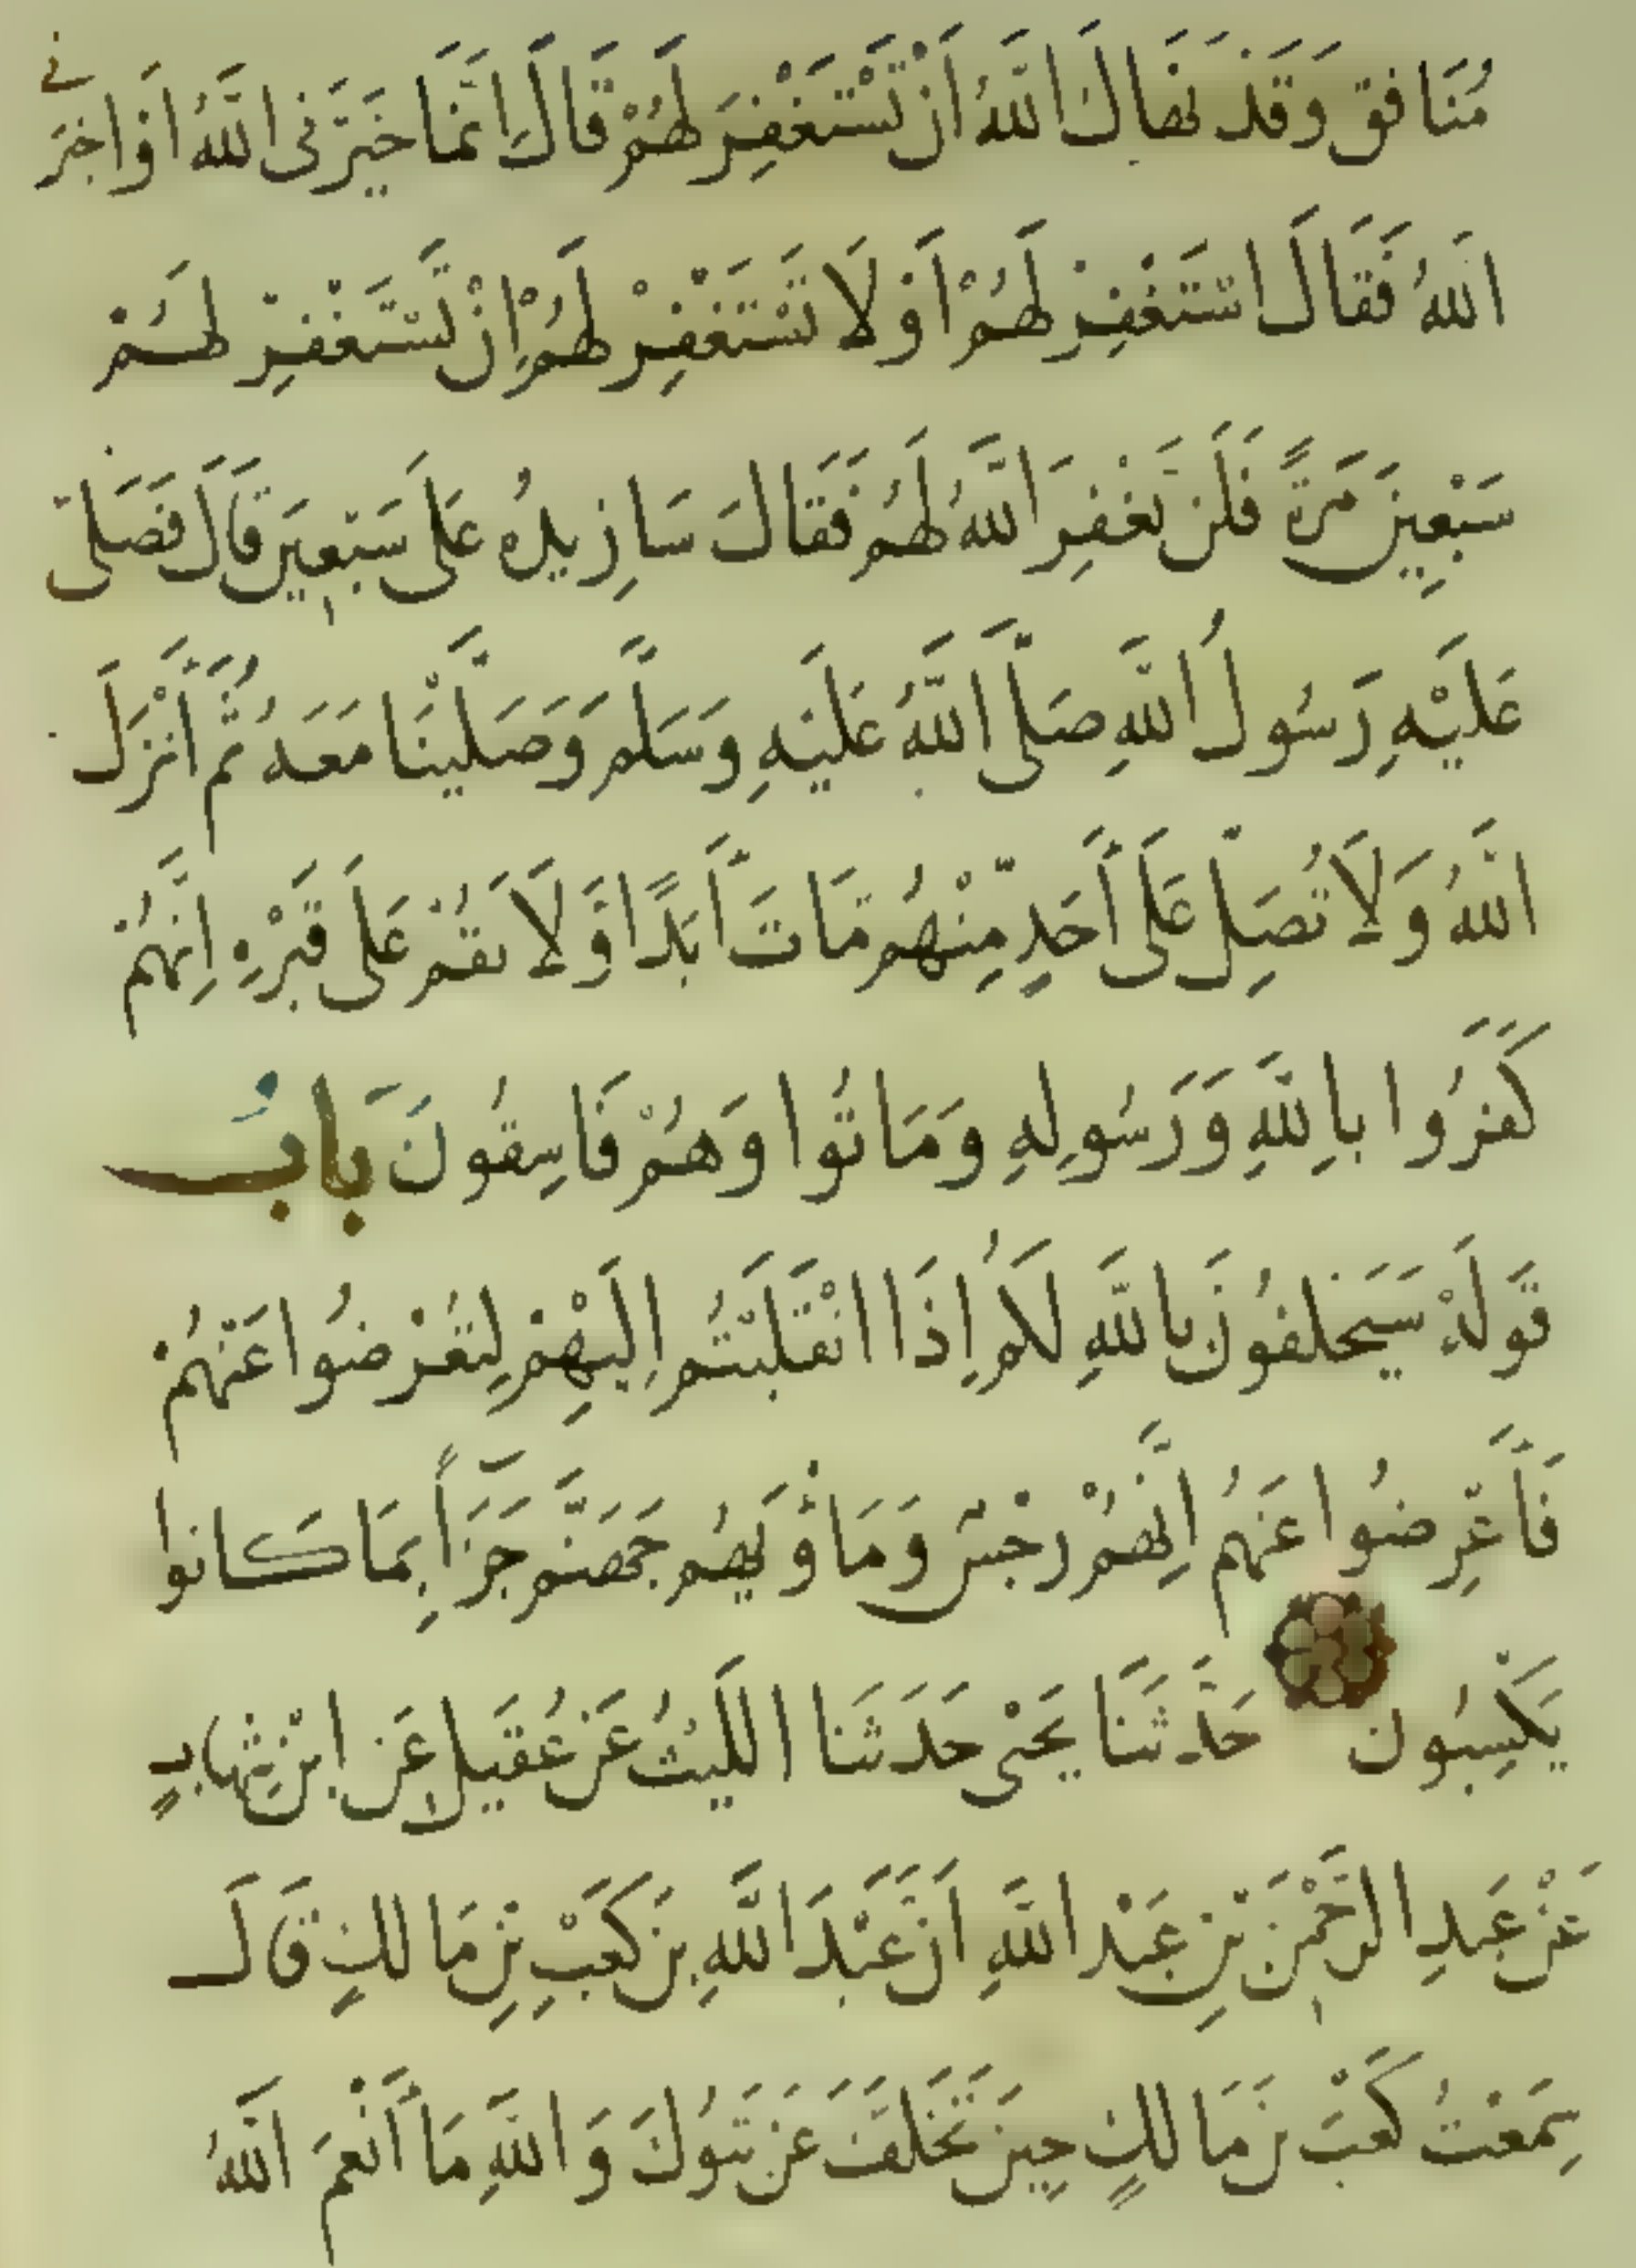 مُنَافِق وَقَدْ نَهَاكَ اللَّهُ أَنْ تَسْتَغْفِرَ لَهُمْ قَالَ إِنَّمَا خَيَّرَنِي اللَّهُ أَوْ أَخْبَرَنِي
اللَّهُ فَقَالَ اسْتَغْفِرْ لَهُمْ أَوْ لَا تَسْتَغْفِرْ لَهُمْ إِنْ تَسْتَغْفِرْ لَهُمْ
سَبْعِينَ مَرَّةً فَلَنْ يَغْفِرَ اللَّهُ لَهُمْ فَقَالَ سَأَزِيدُهُ عَلَى سَبْعِينَ قَالَ فَصَلَّى
عَلَيْهِ رَسُولُ اللَّهِ صَلَّى اللَّهُ عَلَيْهِ وَسَلَّمَ وَصَلَّيْنَا مَعَهُ ثُمَّ أَنْزَلَ
اللَّهُ وَلَا تُصَلِّ عَلَى أَحَدٍ مِنْهُمْ مَاتَ أَبَدًا وَلَا تَقُمْ عَلَى قَبْرِهِ إِنَّهُمْ
كَفَرُوا بِاللَّهِ وَرَسُولِهِ وَمَاتُوا وَهُمْ فَاسِقُونَ بَابُ
قَوْلِهِ سَيَحْلِفُونَ بِاللَّهِ لَكُمْ إِذَا انْقَلَبْتُمْ إِلَيْهِمْ لِتُعْرِضُوا عَنْهُمْ
فَأَعْرِضُوا عَنْهُمْ إِنَّهُمْ رِجْسٌ وَمَأْوَيهُمْ جَهَنَّمُ جَزَآءً بِمَا كَانُوا
يَكْسِبُونَ حَدَّثَنَا يَحْيَى حَدَّثَنَا اللَّيْثُ عَنْ عُقَيْلٍ عَنِ ابْنِ شِهَابٍ
عَنْ عَبْدِ الرَّحْمَنِ بْنِ عَبْدِ اللَّهِ أَنَّ عَبْدَ اللَّهِ بْنَ كَعْبِ بْنِ مَالِكٍ قَالَ
سَمِعْتُ كَعْبَ بْنَ مَالِكٍ حِينَ تَخَلَّفَ عَنْ تَبُوكَ وَاللَّهِ مَا أَنْعَمَ اللَّهُ